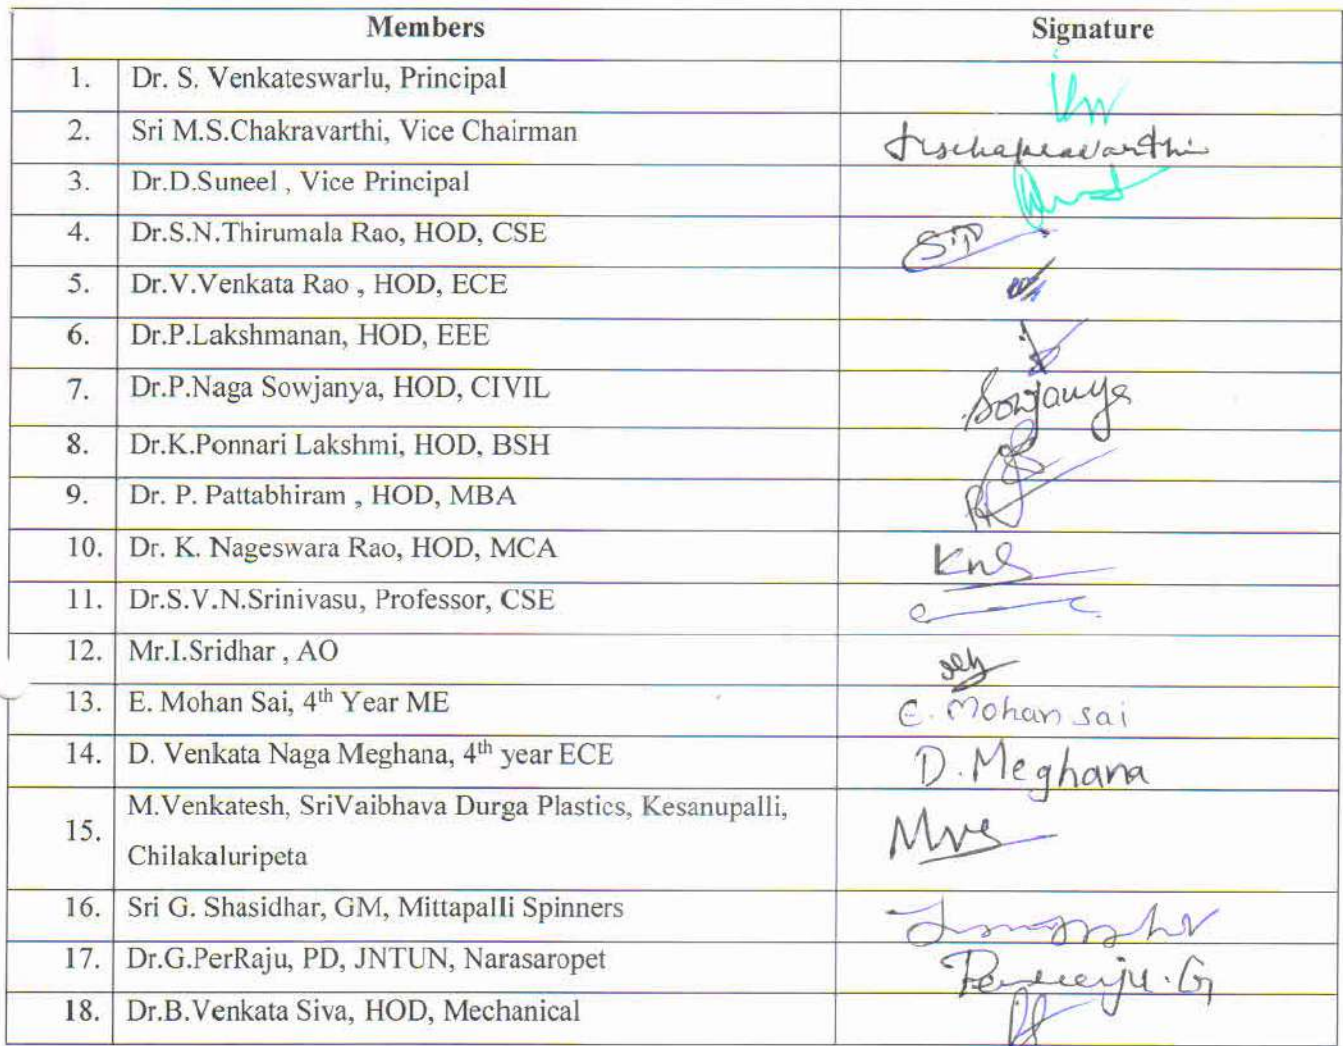 Members Signature
1. Dr. S. Venkateswarlu, Principal
2. Sri M.S.Chakravarthi, Vice Chairman
3. Dr.D.Suneel , Vice Principal
4. Dr.S.N.Thirumala Rao, HOD, CSE
5. Dr.V.Venkata Rao , HOD, ECE
6. Dr.P.Lakshmanan, HOD, EEE
7. Dr.P.Naga Sowjanya, HOD, CIVIL Sowjanya
8. Dr.K.Ponnari Lakshmi, HOD, BSH
9. Dr. P. Pattabhiram , HOD, MBA
10. Dr. K. Nageswara Rao, HOD, MCA
11. Dr.S.V.N.Srinivasu, Professor, CSE
12. Mr.I.Sridhar , AO
13. E. Mohan Sai, 4th Year ME E. Mohan sai
14. D. Venkata Naga Meghana, 4th year ECE D. Meghana
15. M.Venkatesh, SriVaibhava Durga Plastics, Kesanupalli,
Chilakaluripeta
16. Sri G. Shasidhar, GM, Mittapalli Spinners
17. Dr.G.PerRaju, PD, JNTUN, Narasaropet
18. Dr.B.Venkata Siva, HOD, Mechanical